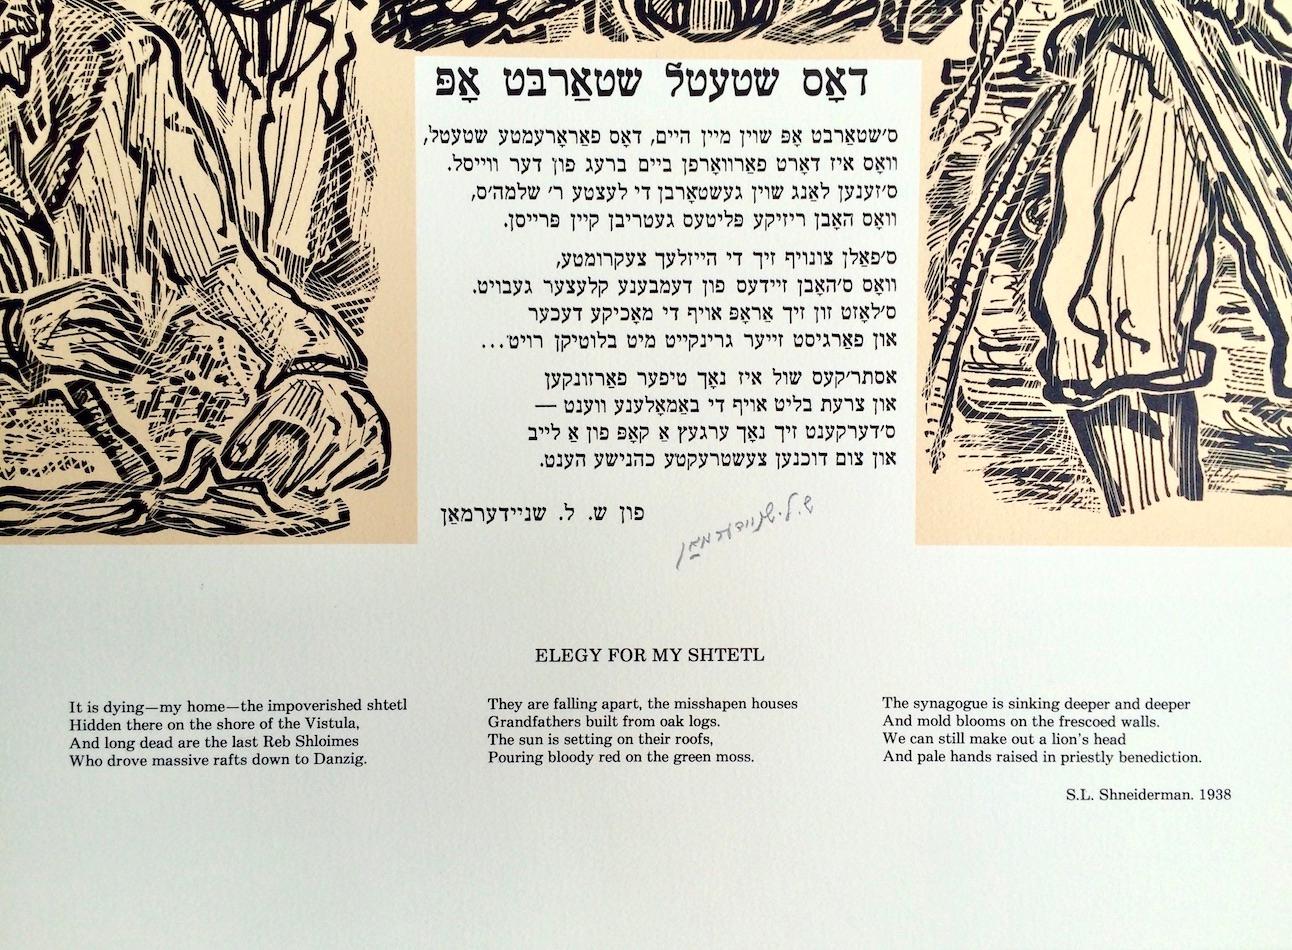 דאָס שטעטל שטאַרבט אָפּ
ס׳שטאַרבט אָפּ שוין מיין היים, דאָס פאַראָרעמטע שטעטל,
וואָס איז דאָרט פאַרוואָרפן ביים ברעג פון דער ווייסל.
ס׳זענען לאַנג שוין געשטאָרבן די לעצטע ר׳ שלמה׳ס,
וואָס האָבן ריזיקע פליטעס געטריבן קיין פרייסן.
ס׳פאַלן צונויף זיך די הייזלעך צעקרומטע,
וואָס ס׳האָבן זיידעס פון דעמבענע קלעצער געבויט.
ס׳לאָזט זון זיך אַראָפּ אויף די מאָכיקע דעכער
און פאַרגיסט זייער גרינקייט מיט בלוטיקן רויט...
אסתר׳קעס שול איז נאָך טיפער פאַרזונקען
און צרעת בליט אויף די באַמאָלענע ווענט —
ס׳דערקענט זיך נאָך ערגעץ אַ קאָפּ פון אַ לייב
און צום דוכנען צעשטרעקטע כהנישע הענט.
פון ש. ל. שניידערמאַן
ש. ל. שניידערמאַן
ELEGY FOR MY SHTETL
It is dying—my home—the impoverished shtetl
Hidden there on the shore of the Vistula,
And long dead are the last Reb Shloimes
Who drove massive rafts down to Danzig.
They are falling apart, the misshapen houses
Grandfathers built from oak logs.
The sun is setting on their roofs,
Pouring bloody red on the green moss.
The synagogue is sinking deeper and deeper
And mold blooms on the frescoed walls.
We can still make out a lion's head
And pale hands raised in priestly benediction.
S.L. Shneiderman. 1938